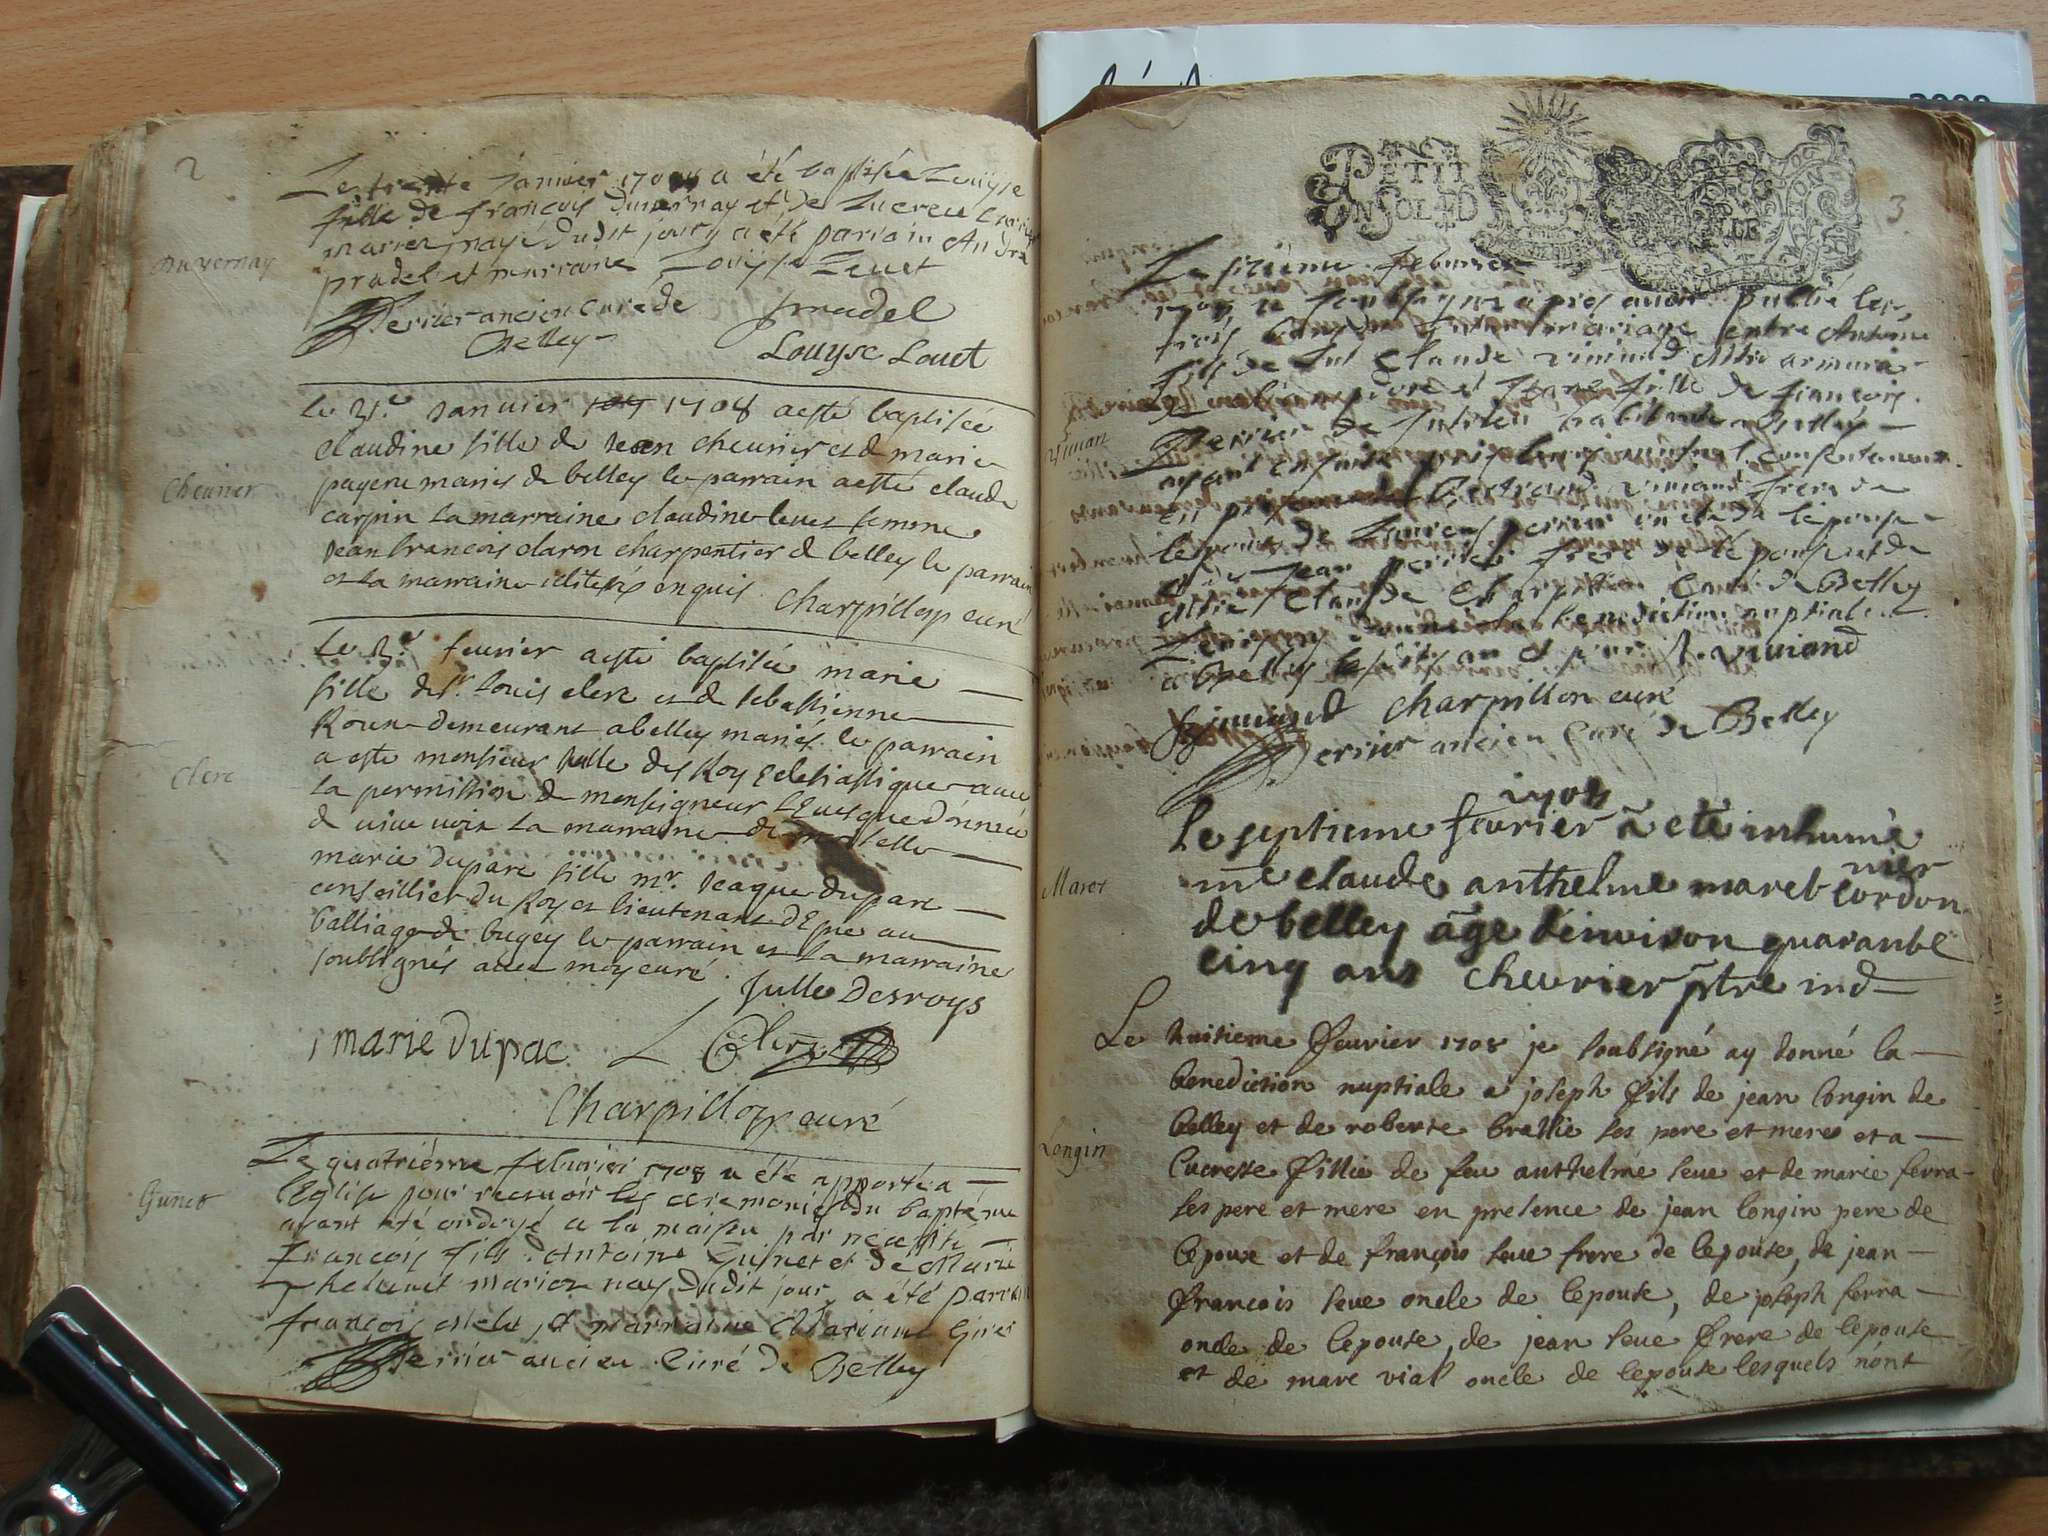 2
Le trente Janvier 1708 a été baptisée Louyse
fille de françois Duvernay et de Lucrece
mariez nayé dudit jour, a été parrain André
pradel et marraine Louyse Louet
Perrier ancien curé de
Belley
pradel
Louyse Louet
Duvernay
le 31.e Januier 1708 aesté baptisée
claudine fille de Jean cheurier et d marie
payen maries de belley le parrain aesté claude
carpin la marraine claudine leues femme
Jean francois claron charpentier d belley le parrain
et la marraine enquis
Charpillon curé
Cheurier
Le 2.e feurier aesté baptisée marie
fille de Sr. Louis clerc et d sebastienne
Roux demeurans abelley mariés le parrain
a esté monsieur Julle des Roys Eclesiastique auec
la permission d monseigneur L'Euesque donnée
d uiue uoix la marraine demoiselle
marie duparc fille mr. Jaque duparc
conseillier du Roy et lieutenant au
balliage de bugey le parrain et la marraine
soubsignés auec moy curé
Julle Desroys
marie Dupac
L Clerc
Charpillon curé
Clerc
Le quatriéme feburier 1708 a été apporté a
l'Eglise pour receuoir les ceremonies du baptéme
ayant été ondoyé a la maison par necessité
François fils d'Antoine Gunet et de Marie
mariez nay dudit jour, a été parrain
françois et marraine Mariane
Perrier ancien Curé de Belley
Gunet
PETIT
UN SOL 6 D
3
Le sizieme feburier
1708, je soubsigné apres auoir publié les
trois bans de mariage entre Antoine
fils de feu Claude Viuiand Mtre armurier
et Jeane fille de françois
Perrier de habitant a Belley
ayant ensuite pris leur mutuel consentement
en presence de Bertrand Viuiand frere de
lepoux de perrier oncle de lepouse
de Jean perrier frere de l'epouse et de
Mre Claude Charpillon Curé de Belley
Je leur ay donné la benediction nuptiale
a Belley les dits an et jour
A. Viuiand
B Viuiand Charpillon curé
Perrier ancien Curé de Belley
Viuian
1708
Le septieme feurier a ete inhumé
me claude anthelme maret cordon
nier
de belley âge d'enuiron quarante
cinq ans cheurier ptre ind
Maret
Le huitieme feurier 1708 je soubsigné ay donné la
benediction nuptiale a joseph fils de jean longin de
belley et de roberte brallie ses pere et mere et a
lucresse fillie de feu anthelme seue et de marie ferra
ses pere et mere en presence de jean longin pere de
lepoux et de françois seue frere de lepouse, de jean
francois seue oncle de lepouse, de joseph ferra
oncle de lepouse, de jean seue frere de lepouse
et de marc vial oncle de lepouse lesquels n'ont
Longin